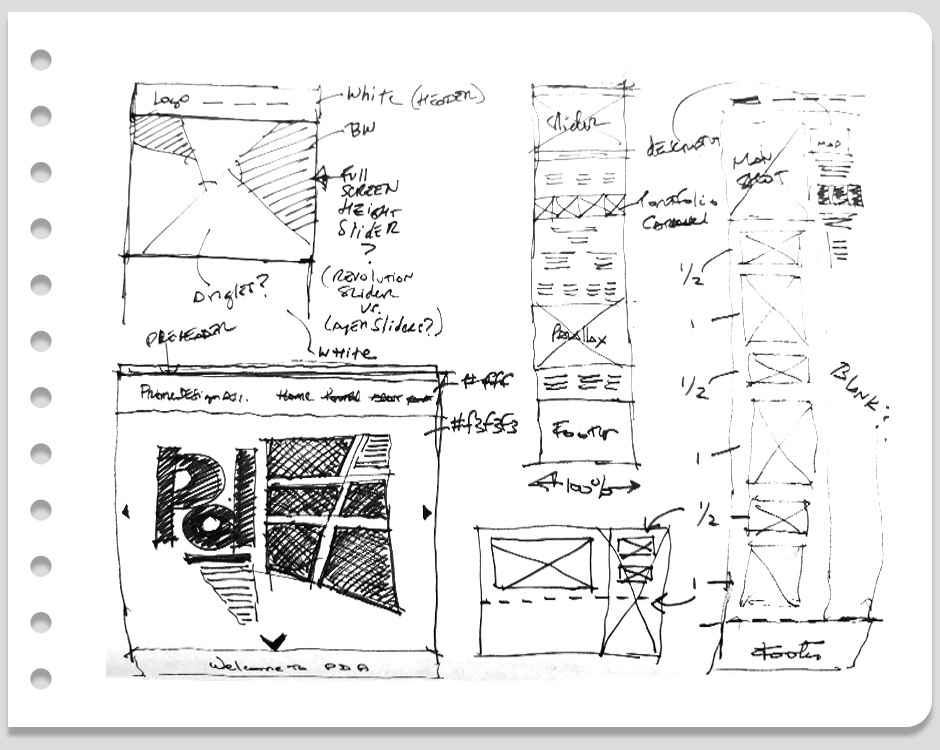 Logo
White (HEADER)
BW
Full
SCREEN
HEIGHT
SLIDER
?
(REVOLUTION
SLIDER
VS.
LAYERSliders?)
Angles?
White
PREHEADER
#fff
HOME
#f3f3f3
Pd
a
Welcome to PDA
Slider
Portfolio
Carousel
Parallax
Footer
100%
MAP
MAIN
1/2
1
1/2
1
1/2
1
BLANK?
Footer